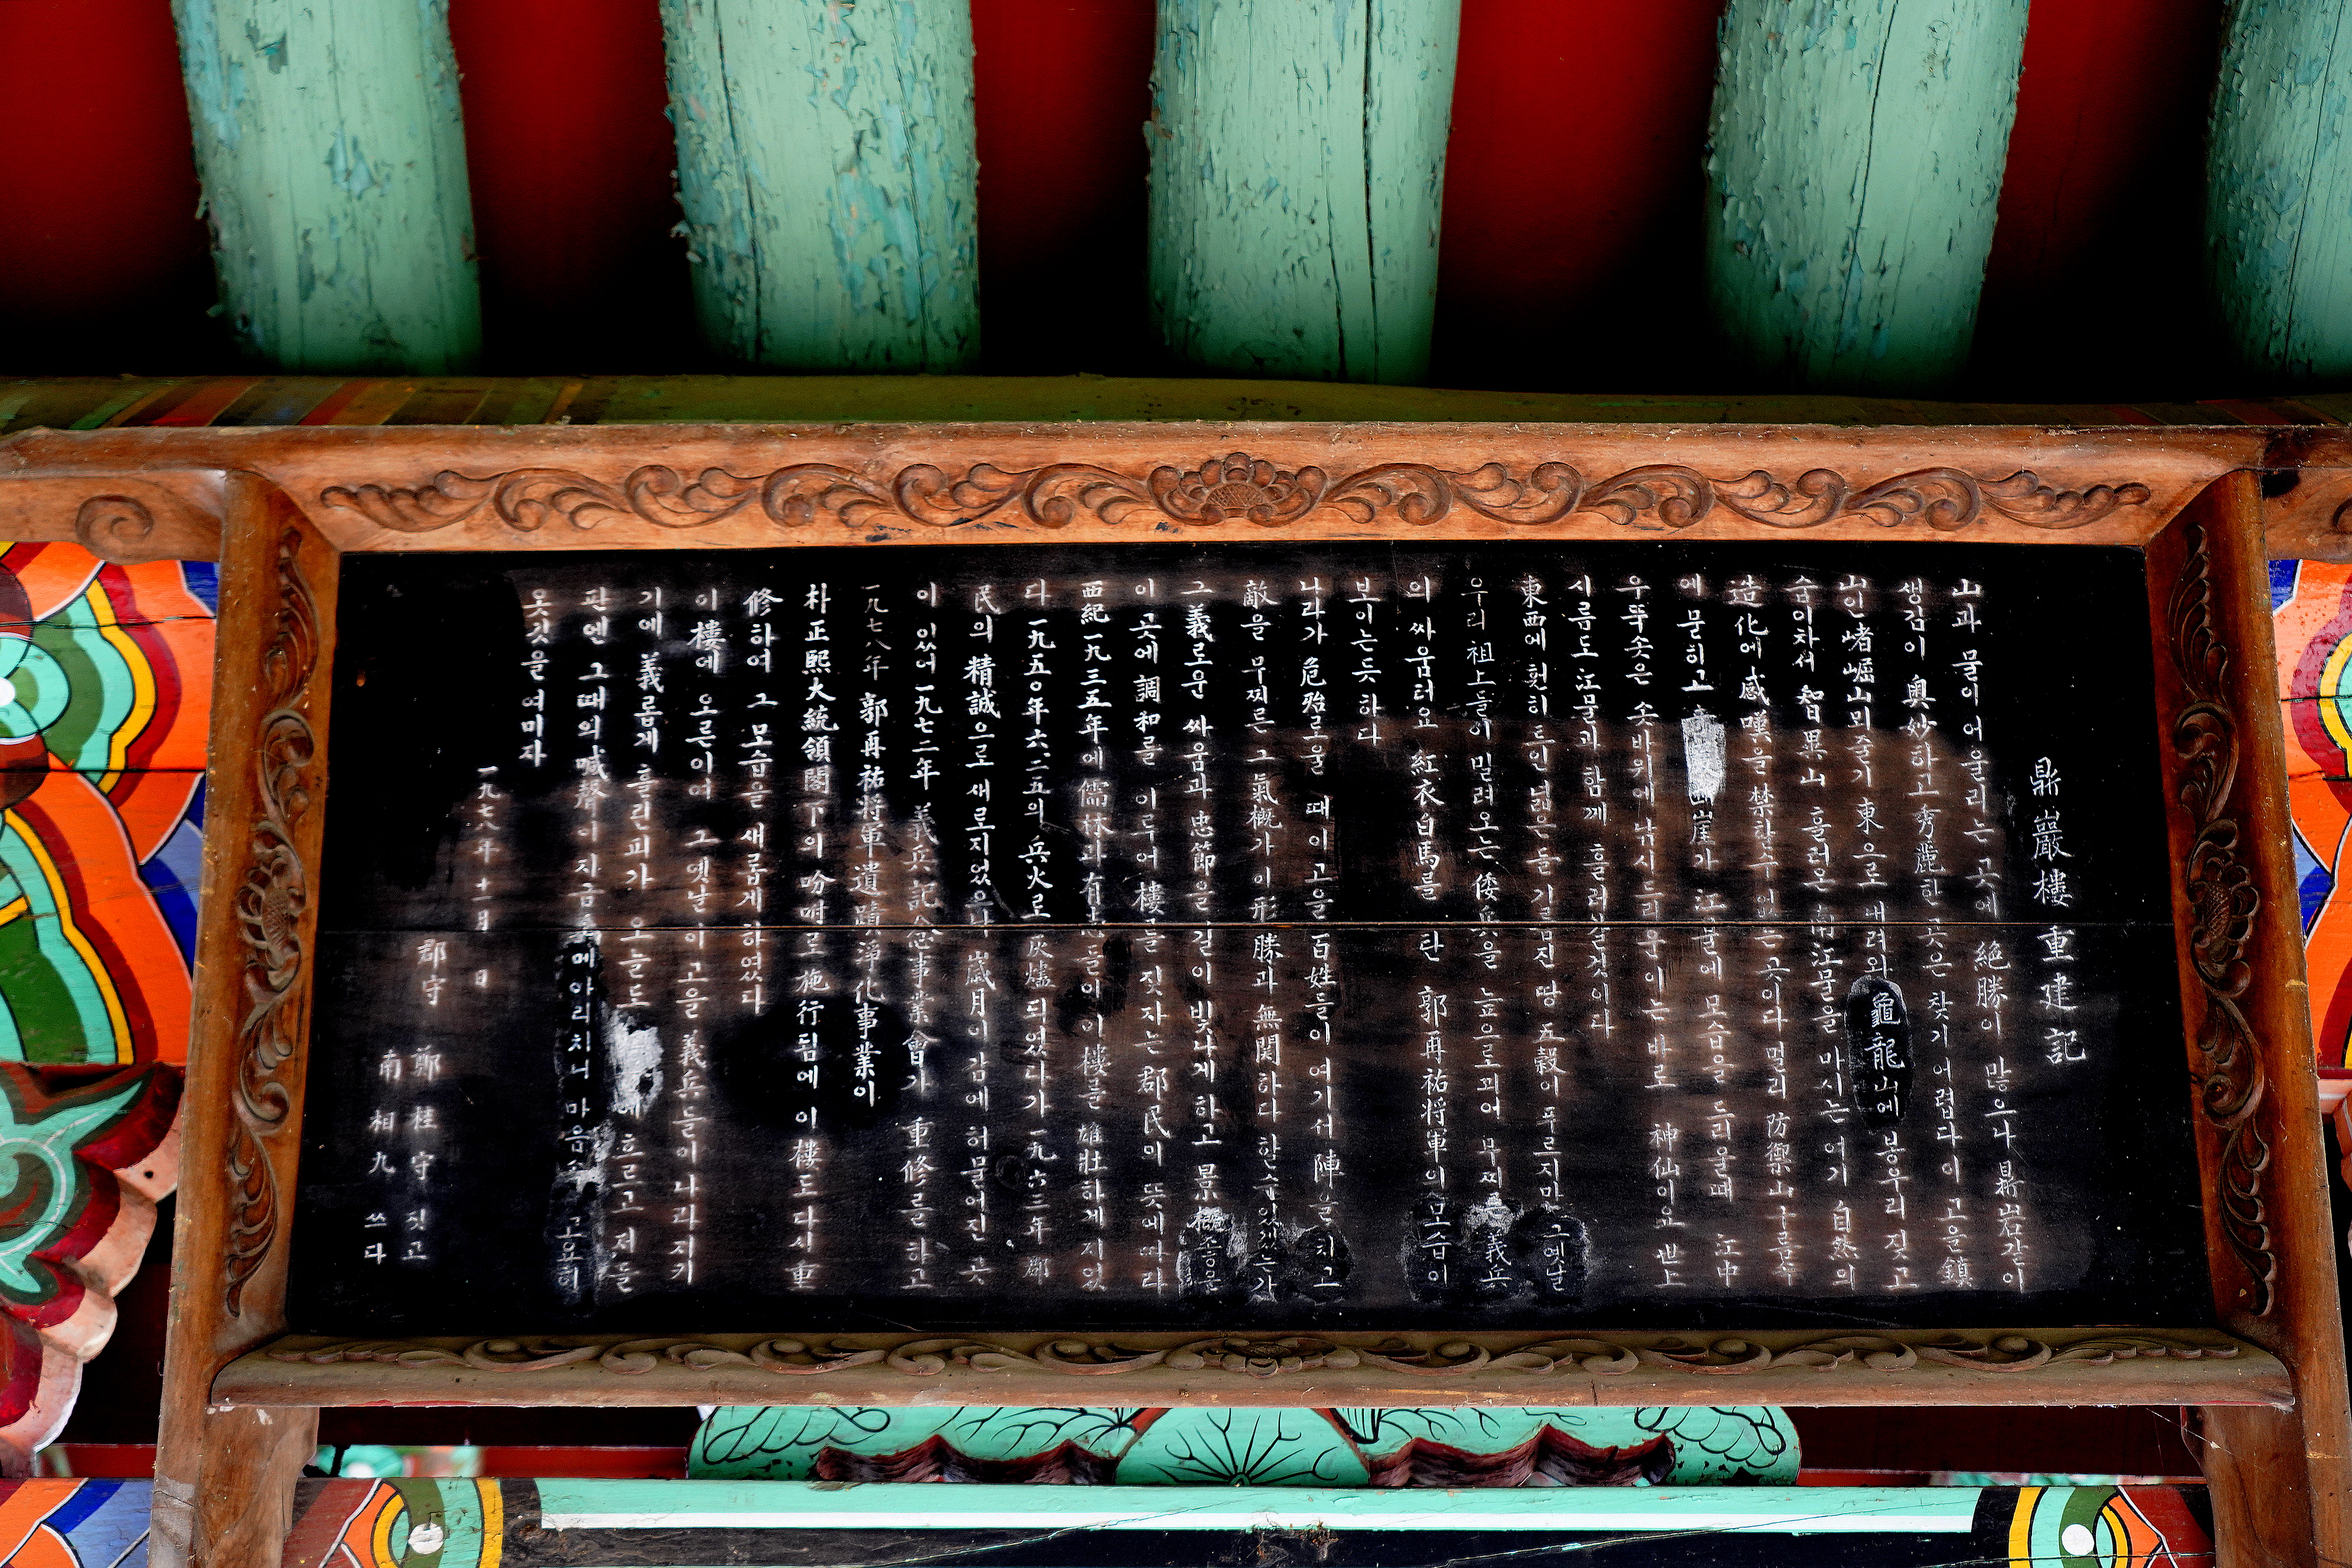 鼎巖樓重建記
山과 물이 어울리는 곳에 絶勝이 많으나 鼎岩같이
생김이 奧妙하고 秀麗한 곳은 찾기 어렵다 이 고을 鎭
山인 崛山 줄기 東으로 내려와 龜龍山에 봉우리 짓고
숨이차서 智異山 흘러온 南江물을 마시는 여기 自然의
造化에 感嘆을 禁할수 없는 곳이다 멀리 防禦山 그림자
에 물히고 斷崖가 江물에 모습을 드리울때 江中
우뚝솟은 솟바위에 낚시 드리운이는 바로 神仙이요 世上
시름도 江물과 함께 흘러갈것이다
東西에 훤히 트인 넓은 들 기름진 땅 五穀이 푸르지만 그옛날
우리 祖上들이 밀려오는 倭兵을 높으로꾀어 무찌른 義兵
의 싸움터요 紅衣白馬를 탄 郭再祐將軍의 모습이
보이는듯 하다
나라가 危殆로울 때 이고을 百姓들이 여기서 陣을 치고
敵을 무찌른 그 氣槪가 이 形勝과 無関하다 할수있겠는가
그 義로운 싸움과 忠節을 길이 빛나게 하고 景 좋은
이 곳에 調和를 이루어 樓를 짓자는 郡民의 뜻에따라
西紀一九三五年에 儒林과 有志들이 이 樓를 雄壯하게 지었
다 一九五〇年 六二五의 兵火로 灰燼되었다가 一九六三年 郡
民의 精誠으로 새로지었으나 歲月이 감에 허물어진 곳
이 있어 一九七二年 義兵記念事業會가 重修를 하고
一九七八年 郭再祐將軍遺蹟淨化事業이
朴正熙大統領閣下의 吩咐로 施行됨에 이 樓도 다시 重
修하여 그 모습을 새롭게 하였다
이 樓에 오른이여 그 옛날 이고을 義兵들이 나라지키
기에 義롭게 흘린피가 오늘도 에 흐르고 저들
판엔 그때의 喊聲이 지금 메아리치니 마음 고요히
옷깃을 여미자
一九七八年 十一月 日
郡守 鄭桂守 짓고
南相九 쓰다